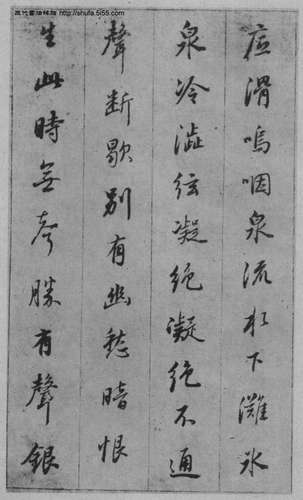 http://shufa.5i55.com
底滑嗚咽泉流水下灘氷
泉冷澁絃凝絶凝絶不通
聲断歇别有幽愁暗恨
生此時無声勝有聲銀